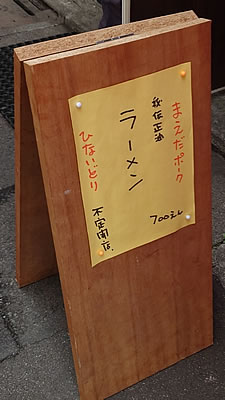 まえだポーク
秘伝正油
ラーメン
700えん
ひないどり
不定開店